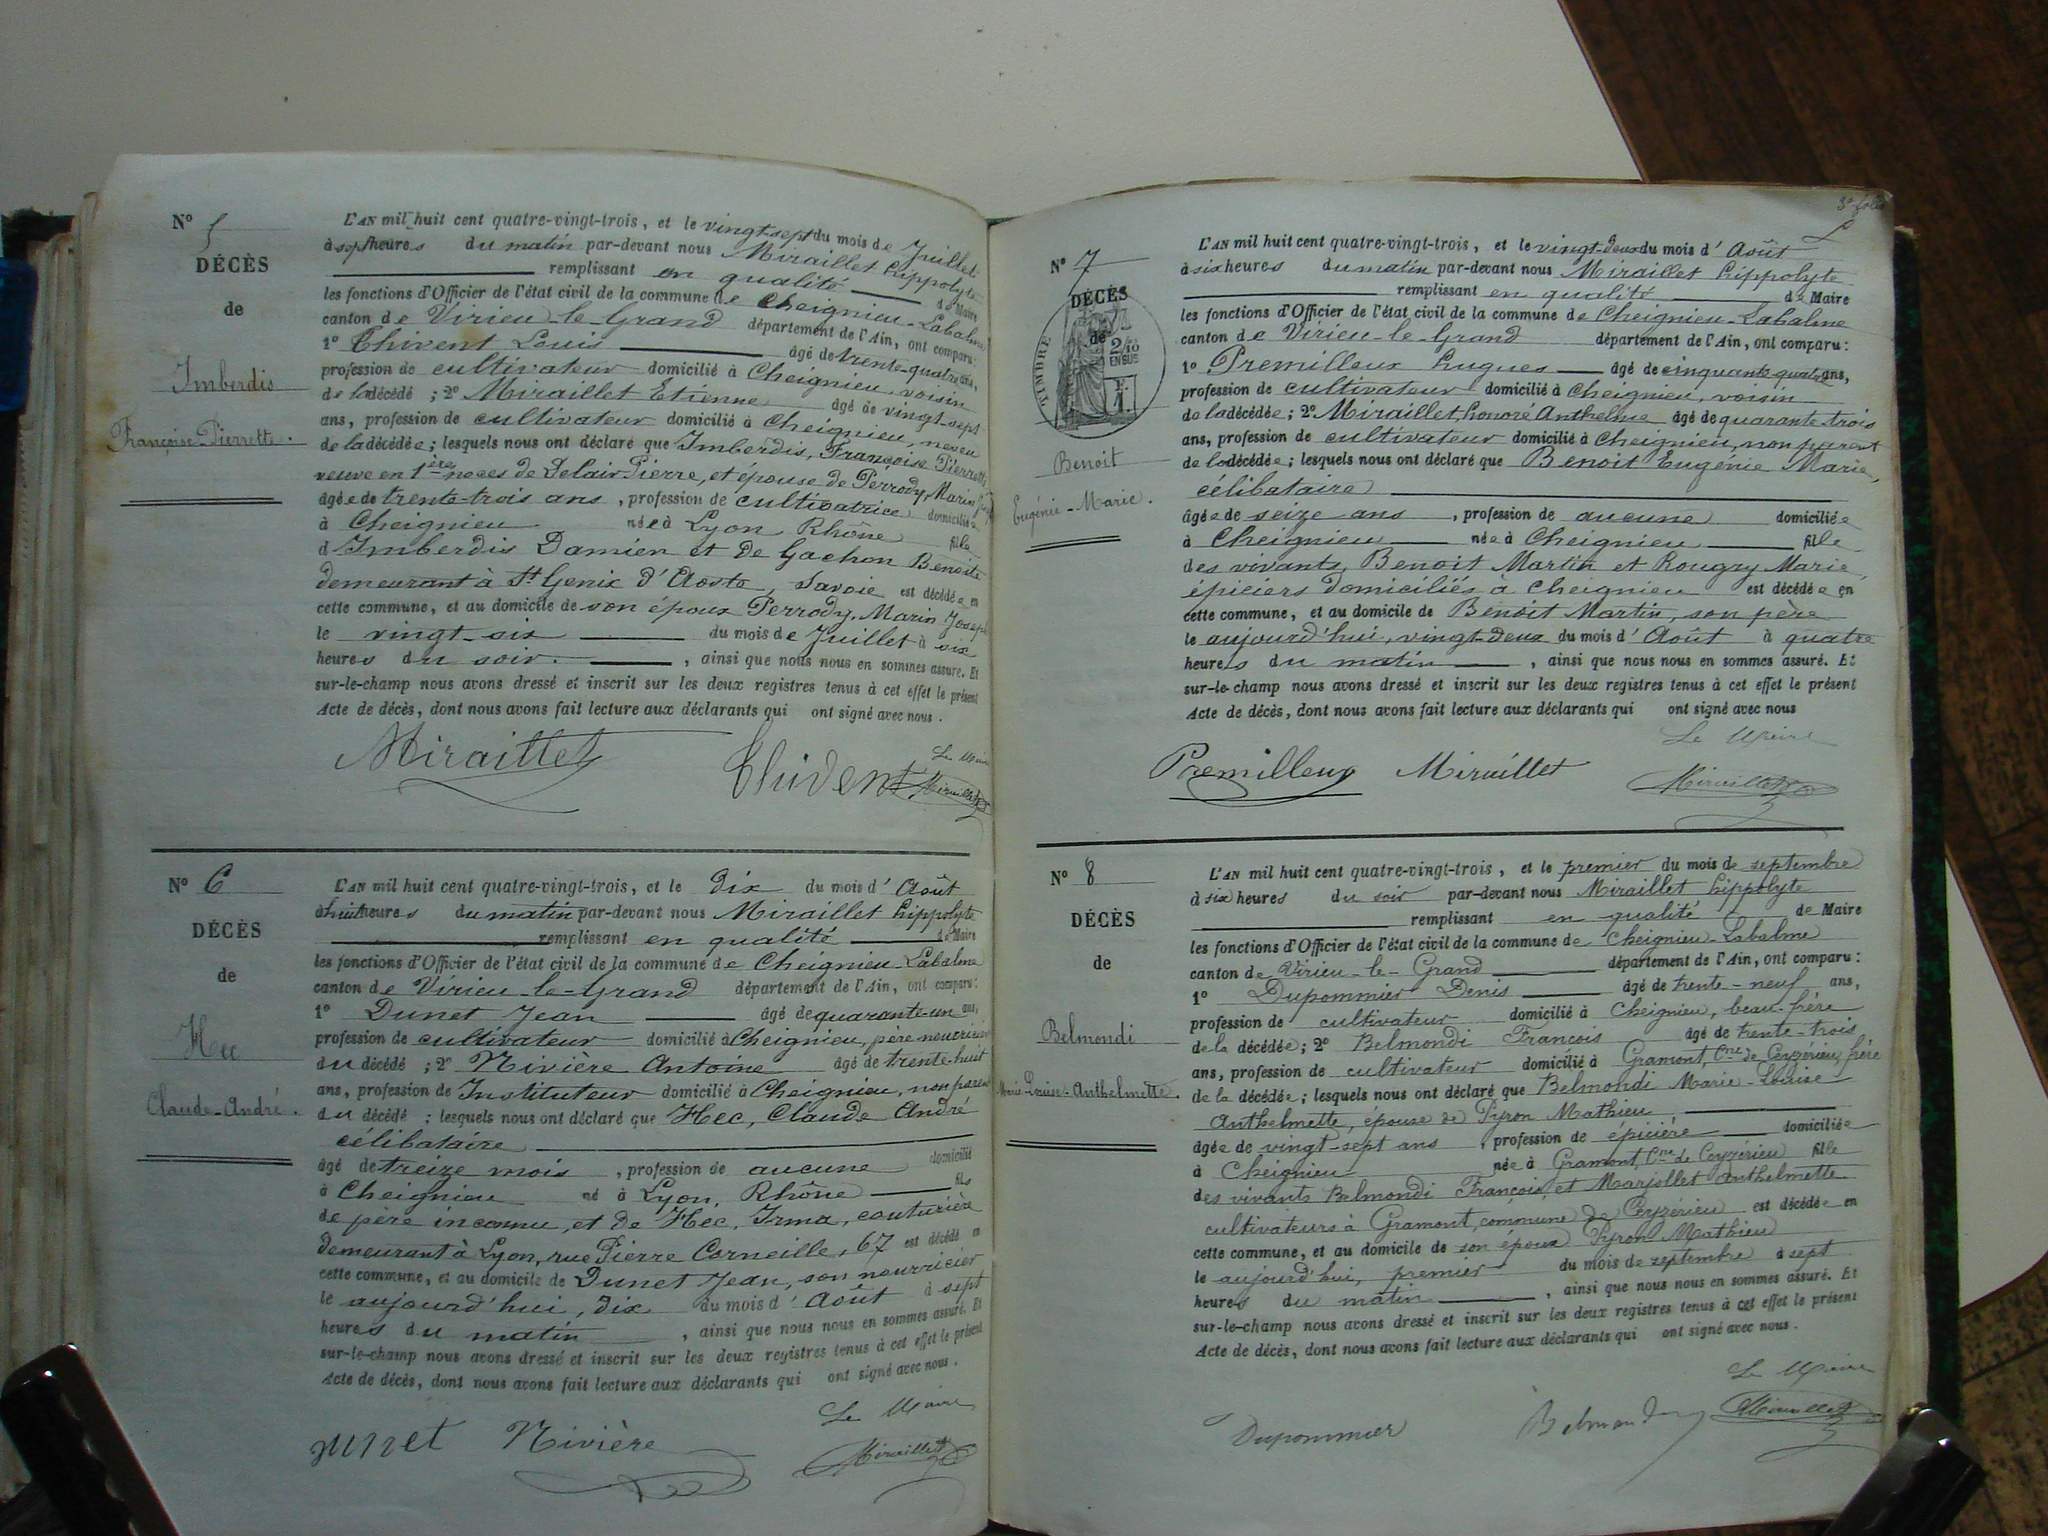 N° 5
DÉCÈS
de
Imberdis
Françoise-Pierrette.
L'AN mil huit cent quatre-vingt-trois, et le vingt-sept du mois de Juillet
à sept heures du matin par-devant nous Miraillet hippolyte
remplissant en qualité de Maire
les fonctions d'Officier de l'état civil de la commune de Cheignieu-Labalme
canton de Virieu-le-Grand département de l'Ain, ont comparu:
1° Thivent Louis âgé de trente-quatre ans,
profession de cultivateur domicilié à Cheignieu, voisin
de la décédé; 2° Miraillet Etienne âgé de vingt-sept
ans, profession de cultivateur domicilié à Cheignieu, neveu
de la décédée; lesquels nous ont déclaré que Imberdis, Françoise Pierrette
veuve en 1ères noces de Delair Pierre, et épouse de Perrody, Marin Joseph
âgée de trente-trois ans, profession de cultivatrice domiciliée
à Cheignieu née à Lyon Rhône fille
d'Imberdis Damien et de Gachon Benoite
demeurant à St Genix d'Aoste, Savoie est décédée en
cette commune, et au domicile de son époux Perrody, Marin Joseph
le vingt-six du mois de Juillet à six
heures du soir. , ainsi que nous nous en sommes assuré. Et
sur-le-champ nous avons dressé et inscrit sur les deux registres tenus à cet effet le présent
Acte de décès, dont nous avons fait lecture aux déclarants qui ont signé avec nous.
Le Maire
Miraillet Thivent Miraillet
N° 6
DÉCÈS
de
Hec
Claude-André.
L'AN mil huit cent quatre-vingt-trois, et le dix du mois d'Août
à huit heures du matin par-devant nous Miraillet hippolyte
remplissant en qualité de Maire
les fonctions d'Officier de l'état civil de la commune de Cheignieu-Labalme
canton de Virieu-le-Grand département de l'Ain, ont comparu:
1° Dunet Jean âgé de quarante-un ans,
profession de cultivateur domicilié à Cheignieu, père nourricier
du décédé; 2° Rivière Antoine âgé de trente-huit
ans, profession de Instituteur domicilié à Cheignieu, non parent
du décédé; lesquels nous ont déclaré que Hec, Claude André
célibataire
âgé de treize mois, profession de aucune domicilié
à Cheignieu né à Lyon, Rhône fils
de père inconnu, et de Héc, Irma, couturière
demeurant à Lyon, rue Pierre Corneille, 67 est décédé en
cette commune, et au domicile de Dunet Jean, son nourricier
le aujourd'hui, dix du mois d'Août à sept
heures du matin , ainsi que nous nous en sommes assuré. Et
sur-le-champ nous avons dressé et inscrit sur les deux registres tenus à cet effet le présent
Acte de décès, dont nous avons fait lecture aux déclarants qui ont signé avec nous.
Le Maire
Dunet Rivière Miraillet
3e folio
N° 7
DÉCÈS
de
TIMBRE
2/10
EN SUS
Benoit
Eugénie-Marie.
L'AN mil huit cent quatre-vingt-trois, et le vingt-deux du mois d'Août
à six heures du matin par-devant nous Miraillet hippolyte
remplissant en qualité de Maire
les fonctions d'Officier de l'état civil de la commune de Cheignieu-Labalme
canton de Virieu-le-Grand département de l'Ain, ont comparu:
1° Premilleux Hugues âgé de cinquante-quatre ans,
profession de cultivateur domicilié à Cheignieu, voisin
de la décédée; 2° Miraillet, honoré Anthelme âgé de quarante-trois
ans, profession de cultivateur domicilié à Cheignieu, non parent
de la décédée; lesquels nous ont déclaré que Benoit Eugénie Marie,
célibataire
âgée de seize ans, profession de aucune domiciliée
à Cheignieu née à Cheignieu fille
des vivants, Benoit Martin et Rougry Marie,
épiciers domiciliés à Cheignieu est décédée en
cette commune, et au domicile de Benoit Martin, son père
le aujourd'hui, vingt-deux du mois d'Août à quatre
heures du matin , ainsi que nous nous en sommes assuré. Et
sur-le-champ nous avons dressé et inscrit sur les deux registres tenus à cet effet le présent
Acte de décès, dont nous avons fait lecture aux déclarants qui ont signé avec nous
Le Maire
Premilleux Miraillet Miraillet
N° 8
DÉCÈS
de
Belmondi
Marie-Louise-Anthelmette.
L'AN mil huit cent quatre-vingt-trois, et le premier du mois de septembre
à six heures du soir par-devant nous Miraillet hippolyte
remplissant en qualité de Maire
les fonctions d'Officier de l'état civil de la commune de Cheignieu-Labalme
canton de Virieu-le-Grand département de l'Ain, ont comparu:
1° Dupommier Denis âgé de trente-neuf ans,
profession de cultivateur domicilié à Cheignieu, beau-frère
de la décédée; 2° Belmondi François âgé de trente-trois
ans, profession de cultivateur domicilié à Gramont, Cne de Ceyzérieu, frère
de la décédée; lesquels nous ont déclaré que Belmondi Marie-Louise
Anthelmette, épouse de Pyron Mathieu,
âgée de vingt-sept ans, profession de épicière domiciliée
à Cheignieu née à Gramont, Cne de Ceyzérieu fille
des vivants Belmondi François, et Marjollet Anthelmette
cultivateurs à Gramont, commune de Ceyzérieu est décédée en
cette commune, et au domicile de son époux Pyron Mathieu
le aujourd'hui, premier du mois de septembre à sept
heures du matin , ainsi que nous nous en sommes assuré. Et
sur-le-champ nous avons dressé et inscrit sur les deux registres tenus à cet effet le présent
Acte de décès, dont nous avons fait lecture aux déclarants qui ont signé avec nous.
Le Maire
Dupommier Belmondi Miraillet